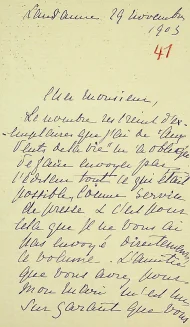 Lausanne 29 novembre
1903
41
Cher Monsieur,
Le nombre restreint d'ex-
emplaires que j'ai de "Aux
Vents de la vie" m'a obligée
de faire envoyer par
l'éditeur tout ce qui était
possible, comme service
de presse & c'est pour
cela que je ne vous ai
pas envoyé directement
le volume. L'amitié
que vous avez pour
mon mari m'est un
sur garant que vous